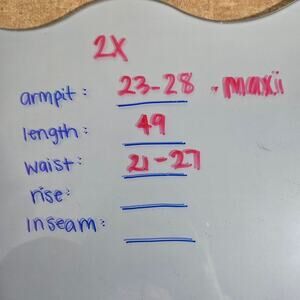 2X
armpit: 23-28 . maxi
length: 49
waist: 21-27
rise:
Inseam: